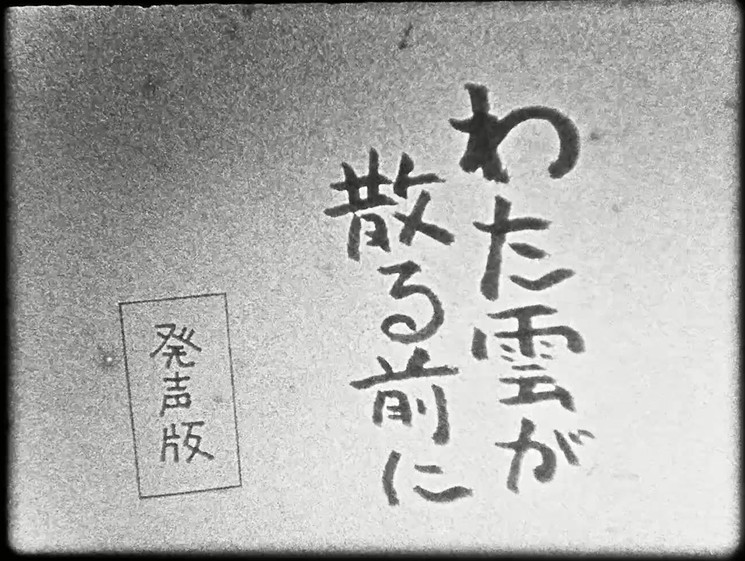 わた雲が
散る前に
発声版